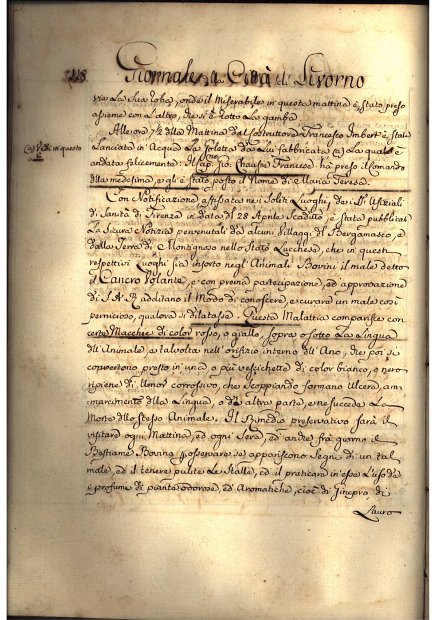 Giornale della Città di Livorno
via la sua roba, onde il Miserabile in questa mattina è stato preso
assieme con l'altro, che si è rotto la gamba.
Alle ore 7½ della Mattina dal Costruttore Francesco Imbert è stata
Lanciata in Acqua La Poletta da Lui fabbricata (a) La quale è
(a) Vedi in questo
andata felicemente. Il Cap. Gio. Francese ha preso il Comando
della medesima, e gli è stato posto il Nome di Maria Teresa.
Con Notificazione affissata nei Soliti Luoghi, da SS. Ufiziali
di Sanità di Firenze in data del 28 Aprile Scaduto, è stata pubblicata
La sicura Notizia pervenuta da alcuni Villaggi di Bergamasco, e
dalla Terra di nello Stato Lucchese, che in questi
respettivi Luoghi sia insorto negl'Animali Bovini il male detto
il Cancro Volante, e con previa partecipazione, ed approvazione
di S. A. R. additano il Modo di conoscere, e curare un male così
pernicioso, qualora si dilatasse. Questa Malattia comparisce con
certe Macchie di color rosso, o giallo, sopra o sotto La Lingua
dell'Animale, e talvolta nell'orifizio interno dell'Ano, che poi si
convertono presto in una, o più vescichette di color bianco, o nero
ripiene di Umor corrosivo, che scoppiando formano Ulcera, am-
marcimento della Lingua, o d'altra parte, e ne succede La
Morte dello stesso Animale. Il Rimedio preservativo sarà il
visitare ogni Mattina, ed ogni Sera, ed anche frà giorno il
Bestiame Bovino p. osservare se appariscono segni di un tal
male, ed il tenere pulite Le Stalle, ed il praticare in esse L'uso de
i profumi di piante odorose, ed Aromatiche, cioè di Ginepro, di
Lauro